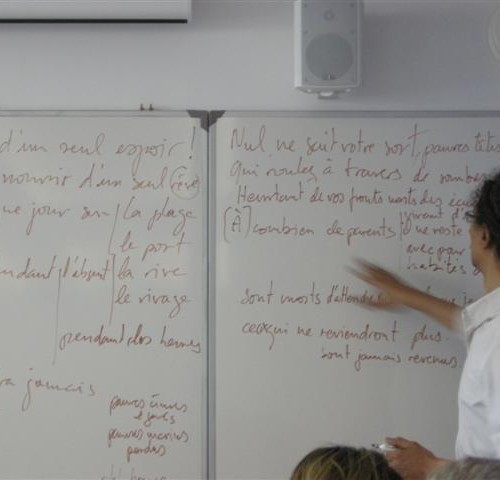 d'un seul espoir !
nourrir d'un seul rêve
que jour sur la plage
le port
endant l'absent la rive
le rivage
pendant des heures
ra jamais
pauvres âmes
égarés
pauvres marins
perdus
Nul ne sait votre sort, pauvres têtes
qui roulez à travers de sombres
Heurtant de vos fronts morts des
[À] combien de parents
vivant d'
ne reste
avec pour
habités
sont morts d'attendre
ceux qui ne reviendront plus.
sont jamais revenus.